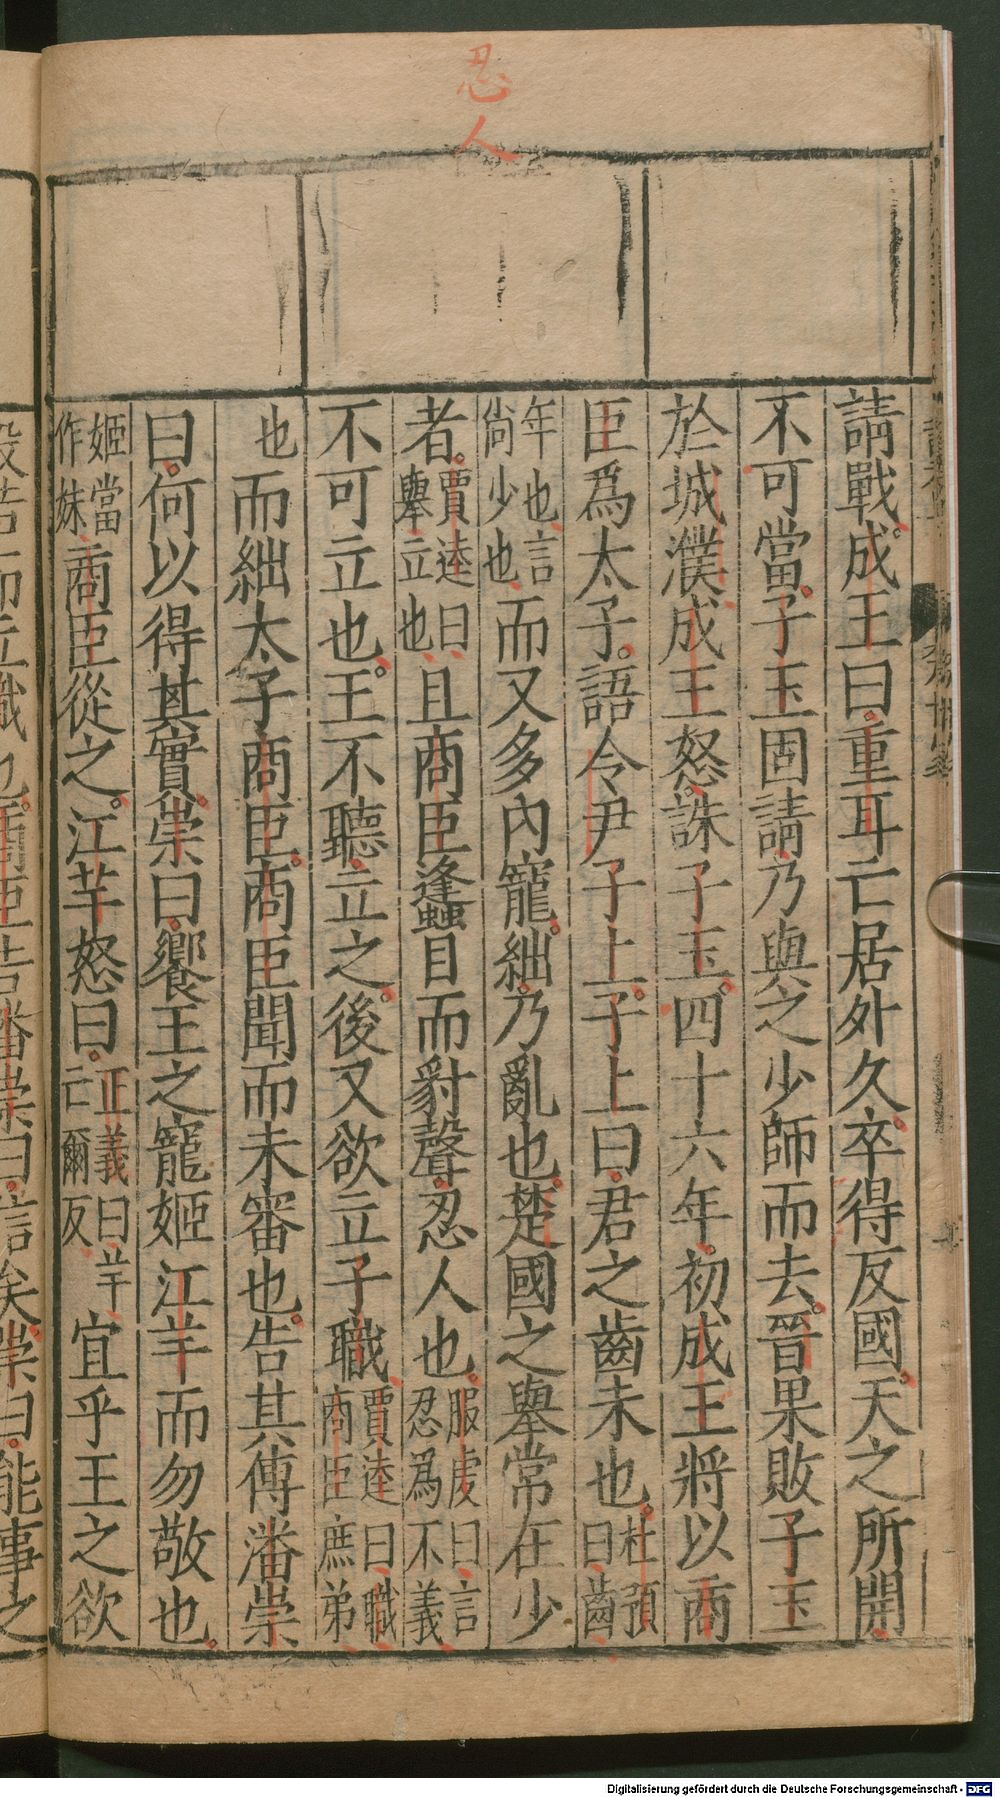 忍人
請戰。成王曰。重耳亡居外久。卒得反國。天之所開
不可當。子玉固請乃與之少師而去。晉果敗子玉
於城濮。成王怒。誅子玉。四十六年。初成王將以商
臣爲太子。語令尹子上。子上曰。君之齒未也。杜預曰。齒
年也。言尚少也。而又多內寵。絀乃亂也。楚國之舉常在少
者。賈逵曰。舉立也。且商臣蠭目而豺聲。忍人也。服虔曰。言忍爲不義
不可立也。王不聽立之。後又欲立子職。賈逵曰。職商臣庶弟
也而絀太子商臣。商臣聞而未審也。告其傅潘崇
曰。何以得其實。崇曰。饗王之寵姬江羊而勿敬也。
姬當作妹。商臣從之。江芊怒曰。正義曰芊亡爾反。宜乎王之欲
殺若而立職也。商臣告潘崇曰。信矣。崇曰。能事之
Digitalisierung gefördert durch die Deutsche Forschungsgemeinschaft - DFG